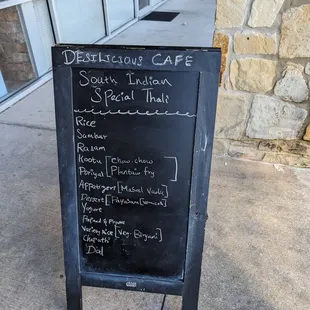 DESILICIOUS CAFE
South Indian
Special Thali
Rice
Sambar
Rasam
Kootu [Chow.chow]
Poriyal [Plantain fry]
Appetizers [Masal Vada]
Dessert [Payasam
Yogurt
Variety Rice [Veg. Biryani]
Chapathi
Dal